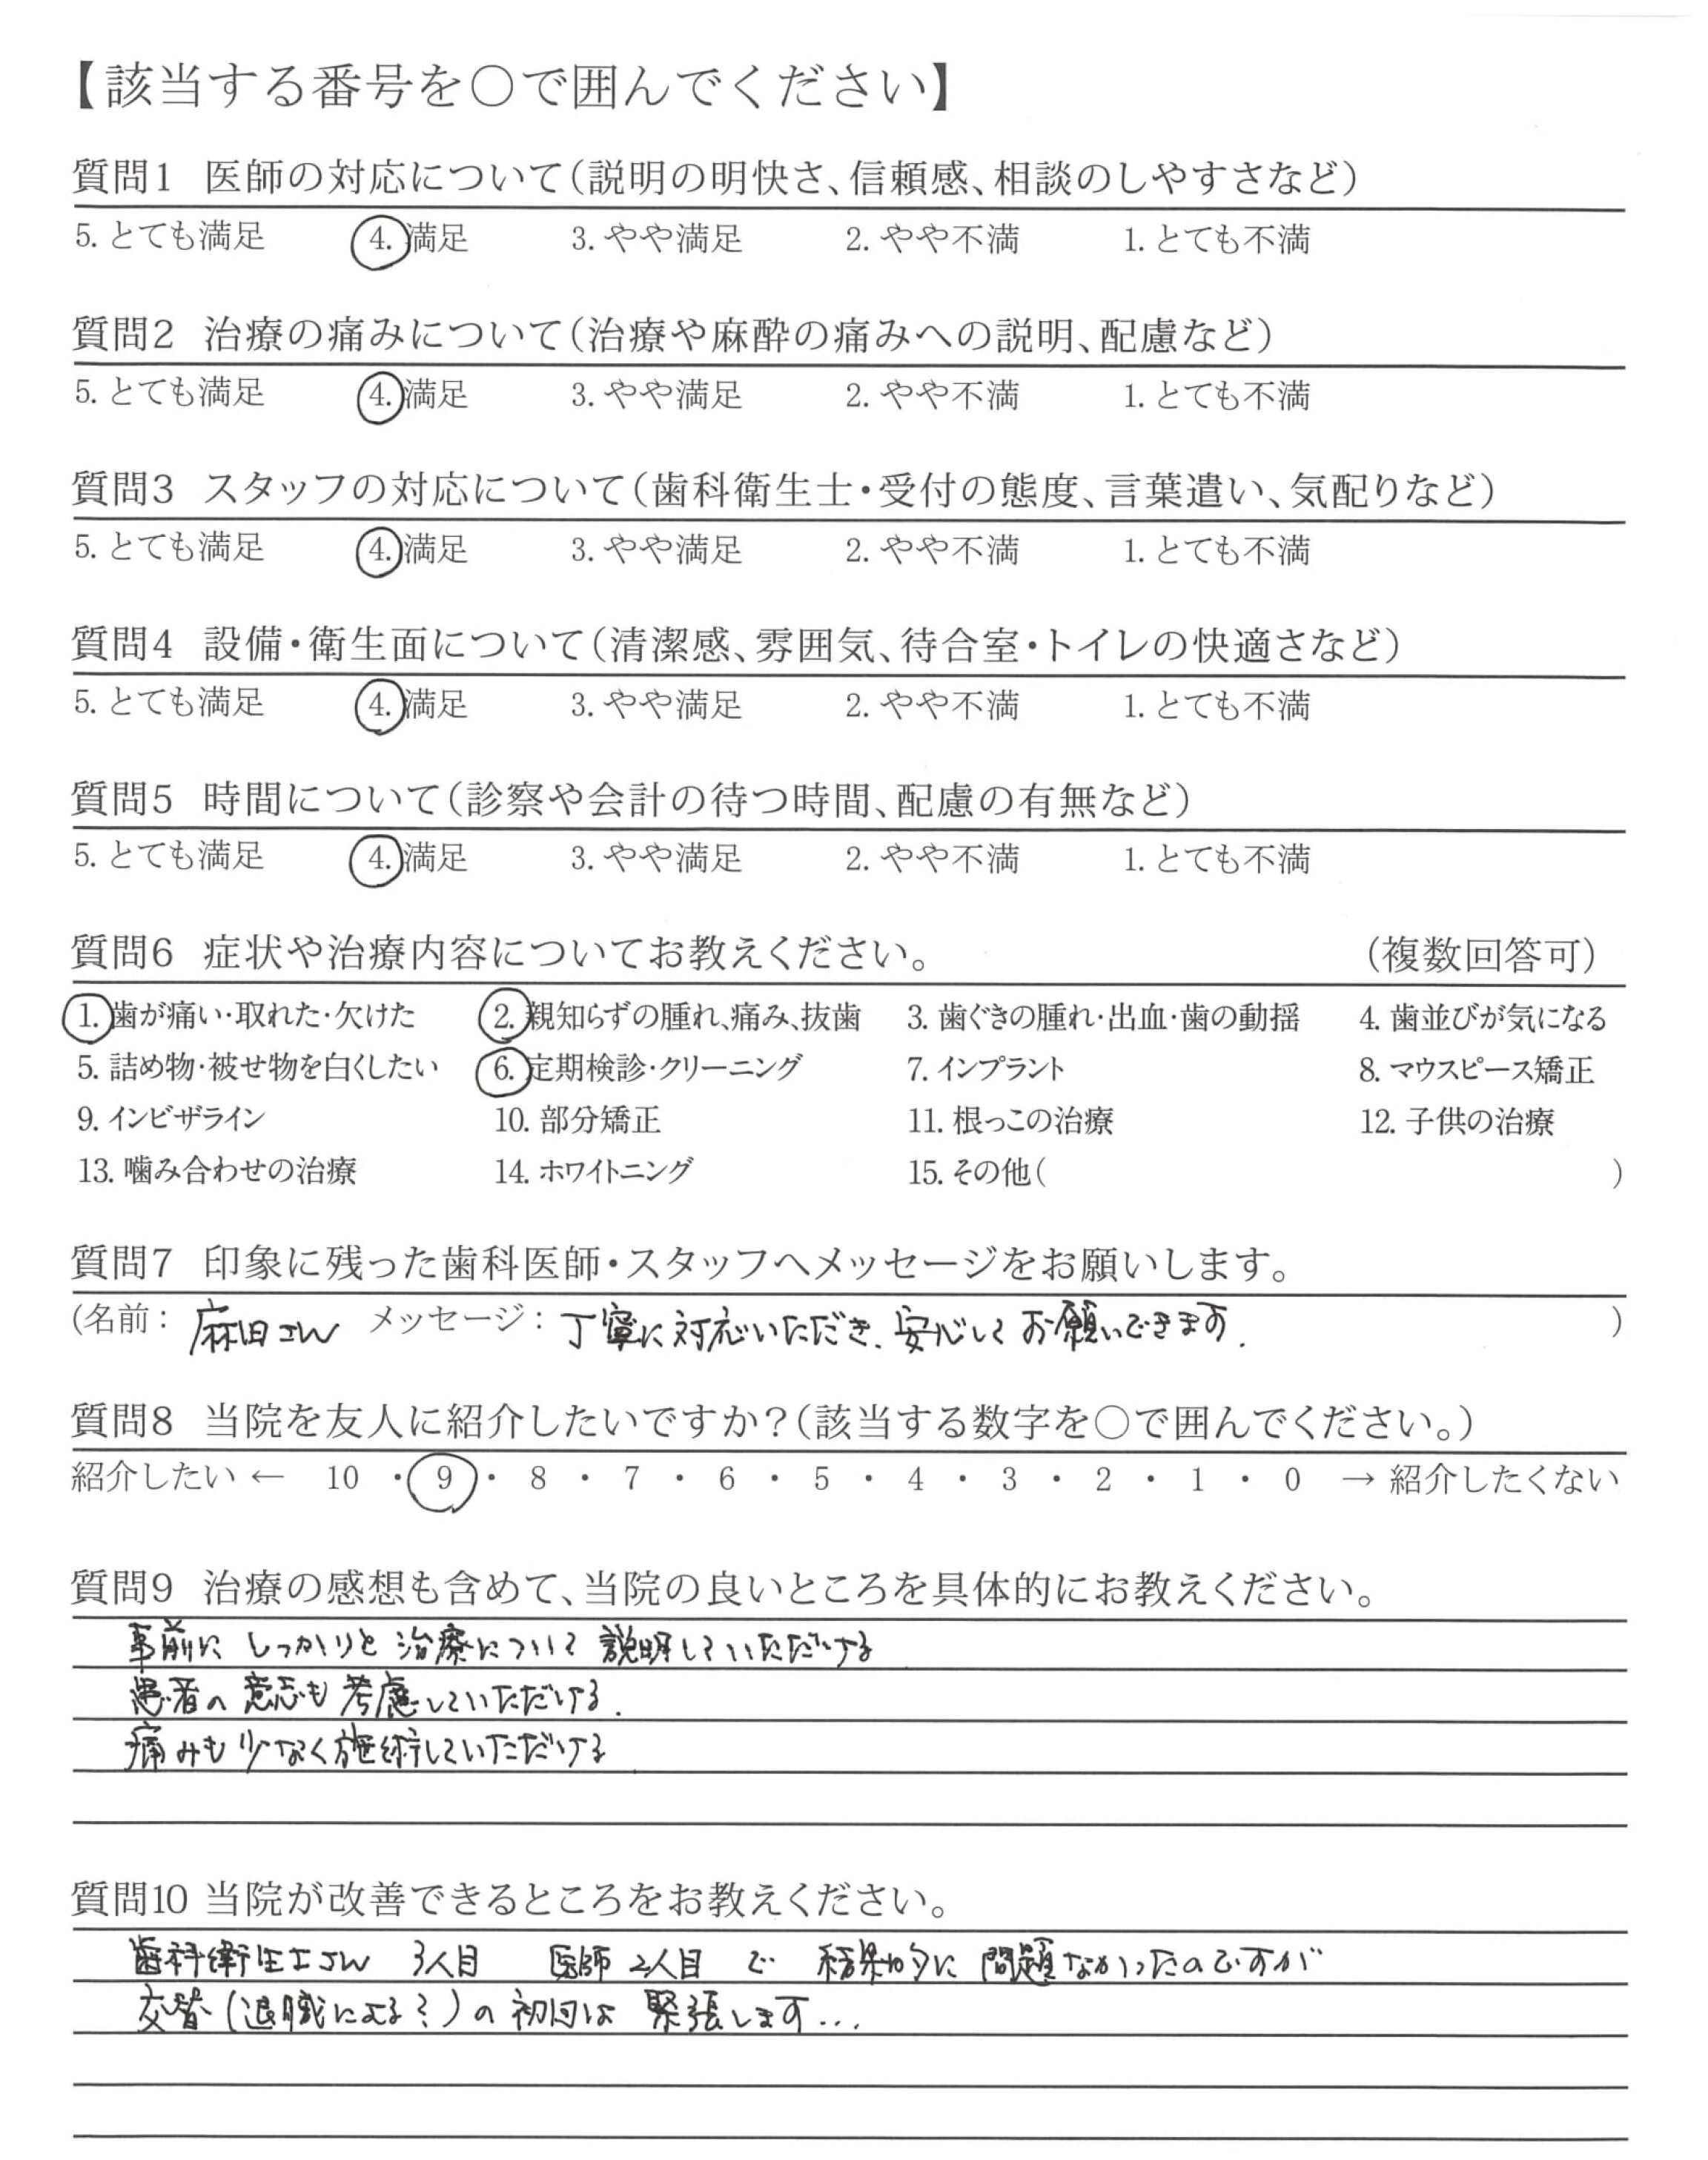 【該当する番号を○で囲んでください】
質問1 医師の対応について(説明の明快さ、信頼感、相談のしやすさなど)
5. とても満足 4. 満足 3. やや満足 2. やや不満 1. とても不満
質問2 治療の痛みについて(治療や麻酔の痛みへの説明、配慮など)
5. とても満足 4. 満足 3. やや満足 2. やや不満 1. とても不満
質問3 スタッフの対応について(歯科衛生士・受付の態度、言葉遣い、気配りなど)
5. とても満足 4. 満足 3. やや満足 2. やや不満 1. とても不満
質問4 設備・衛生面について(清潔感、雰囲気、待合室・トイレの快適さなど)
5. とても満足 4. 満足 3. やや満足 2. やや不満 1. とても不満
質問5 時間について(診察や会計の待つ時間、配慮の有無など)
5. とても満足 4. 満足 3. やや満足 2. やや不満 1. とても不満
質問6 症状や治療内容についてお教えください。 (複数回答可)
1. 歯が痛い・取れた・欠けた 2. 親知らずの腫れ、痛み、抜歯 3. 歯ぐきの腫れ・出血・歯の動揺 4. 歯並びが気になる
5. 詰め物・被せ物を白くしたい 6. 定期検診・クリーニング 7. インプラント 8. マウスピース矯正
9. インビザライン 10. 部分矯正 11. 根っこの治療 12. 子供の治療
13. 噛み合わせの治療 14. ホワイトニング 15. その他( )
質問7 印象に残った歯科医師・スタッフへメッセージをお願いします。
(名前: 麻田さん メッセージ: 丁寧に対応いただき、安心してお願いできます. )
質問8 当院を友人に紹介したいですか?(該当する数字を○で囲んでください。)
紹介したい ← 10 ・ 9 ・ 8 ・ 7 ・ 6 ・ 5 ・ 4 ・ 3 ・ 2 ・ 1 ・ 0 → 紹介したくない
質問9 治療の感想も含めて、当院の良いところを具体的にお教えください。
事前に しっかりと 治療について 説明していただける
患者の 意志も 考慮していただける.
痛みも少なく施術していただける
質問10 当院が改善できるところをお教えください。
歯科衛生士さん 3人目 医師 2人目 で 結果的に 問題なかったのですが
交替(退職による?)の 初回は 緊張します...